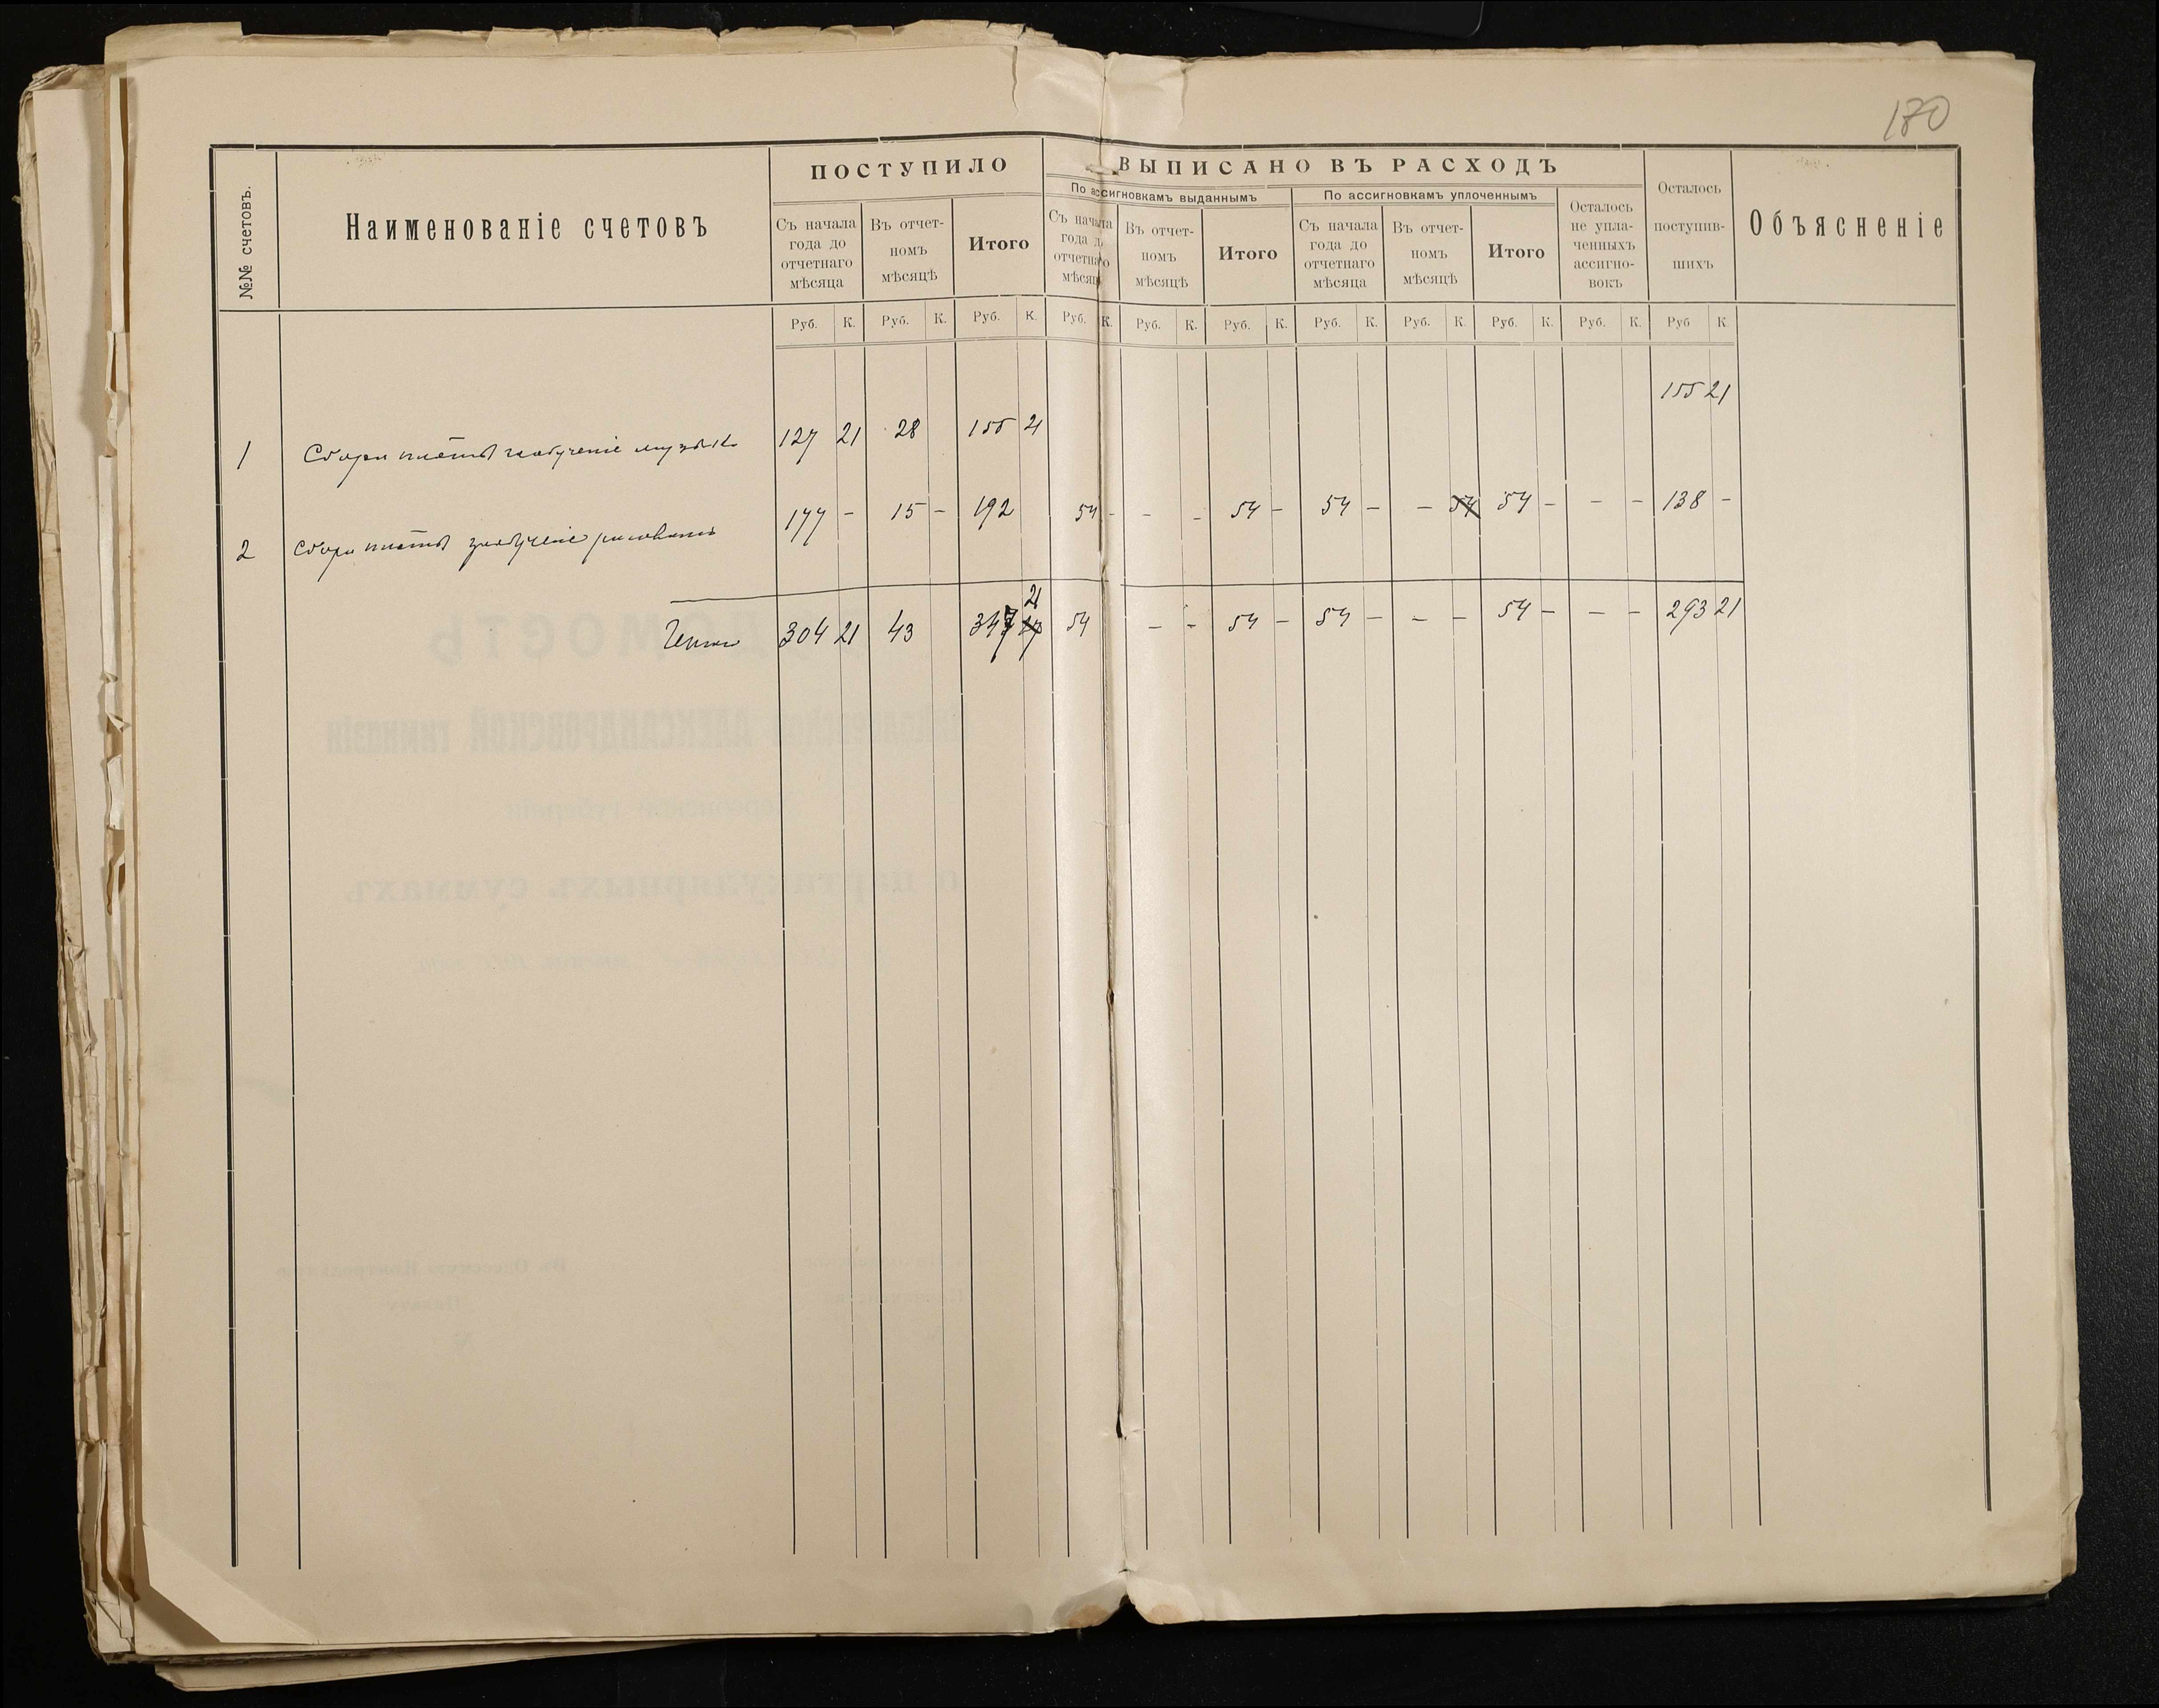 180
№№ счетовъ.
Наименованіе счетовъ
ПОСТУПИЛО
Съ начала года до отчетнаго мѣсяца
Въ отчетномъ мѣсяцѣ
Итого
ВЫПИСАНО ВЪ РАСХОДЪ
По ассигновкамъ выданнымъ
Съ начала года до отчетнаго мѣсяца
Въ отчет-номъ мѣсяцѣ
Итого
По ассигновкамъ уплоченнымъ
Съ начала года до отчетнаго мѣсяца
Въ отчет-номъ мѣсяцѣ
Итого
Осталось не упла-ченныхъ ассигно-вокъ
Осталось поступив-шихъ
Объясненіе
Руб. К. Руб. К. Руб. К. Руб. К. Руб. К. Руб. К. Руб. К. Руб. К. Руб. К. Руб. К. Руб К
1 Сборъ платы за обученіе музыкѣ 127 21 28 155 21 155 21
2 Сборъ платы за обученіе рисованію 177 - 15 - 192 54 - - - 54 - 54 - - 54 - - - 138 -
Итого 304 21 43 347 21 54 - - 54 - 54 - - - 54 - - - 293 21
ВѢДОМОСТЬ
Николаевской АЛЕКСАНДРОВСКОЙ гимназіи
Херсонской губерніи
о партикулярныхъ суммахъ.
Въ Одесскую Контрольную
Палату
№